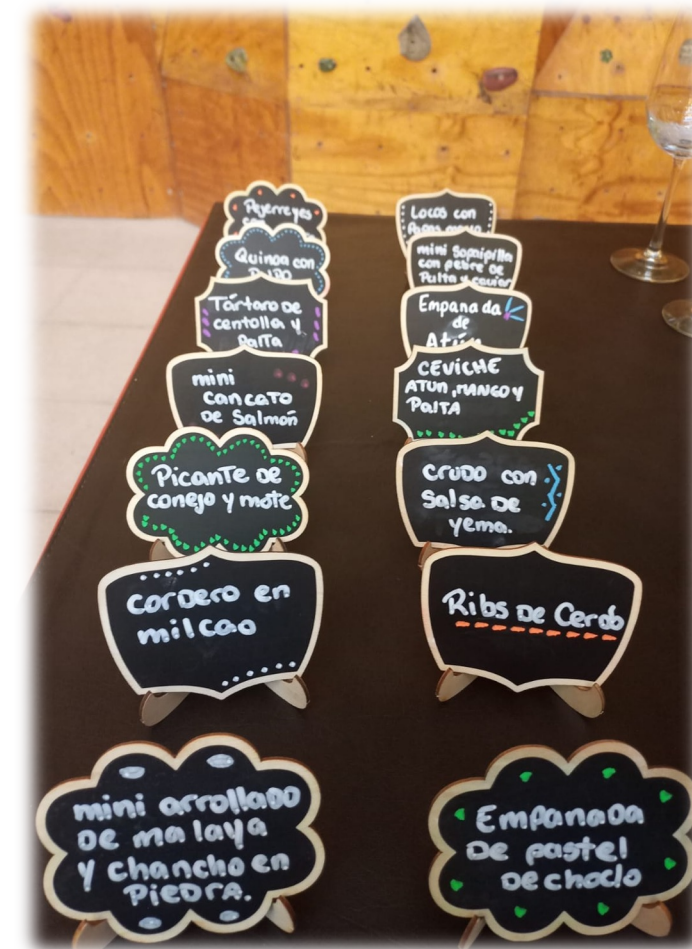 Pejerreyes
Quinoa con
PULPO
Tártaro DE
centolla y
PalTA
mini
cancato
DE Salmón
PicanTe DE
conejo y mote
corDero en
milcao
mini arrollaDO
DE malaya
y chancho en
PIEDRA.
Locos con
Papas mayo
mini Sopaipilla
con pebre DE
Palta y caviar
Empanada
de
Atún
CEVICHE
ATUN, MANGO y
PalTA
cruDO con
Salsa DE
yema.
Ribs De CerDo
EmpanaDa
DE pastel
DE choclo